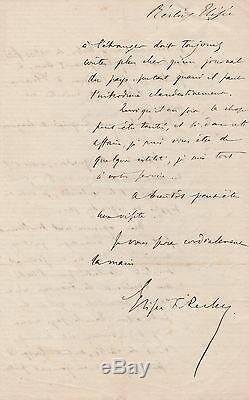 Reclus Elisée
à l'étranger doit toujours
coûter plus cher qu'un journal
du pays, surtout quand il faut
l'introduire clandestinement.
Lorsqu'il en sera la chose
peut être tentée, et si dans cette
affaire, je puis vous être de
quelque utilité, je suis tout
à votre service.
A bientôt peut-être
une visite
Je vous serre cordialement
la main
Elisée Reclus